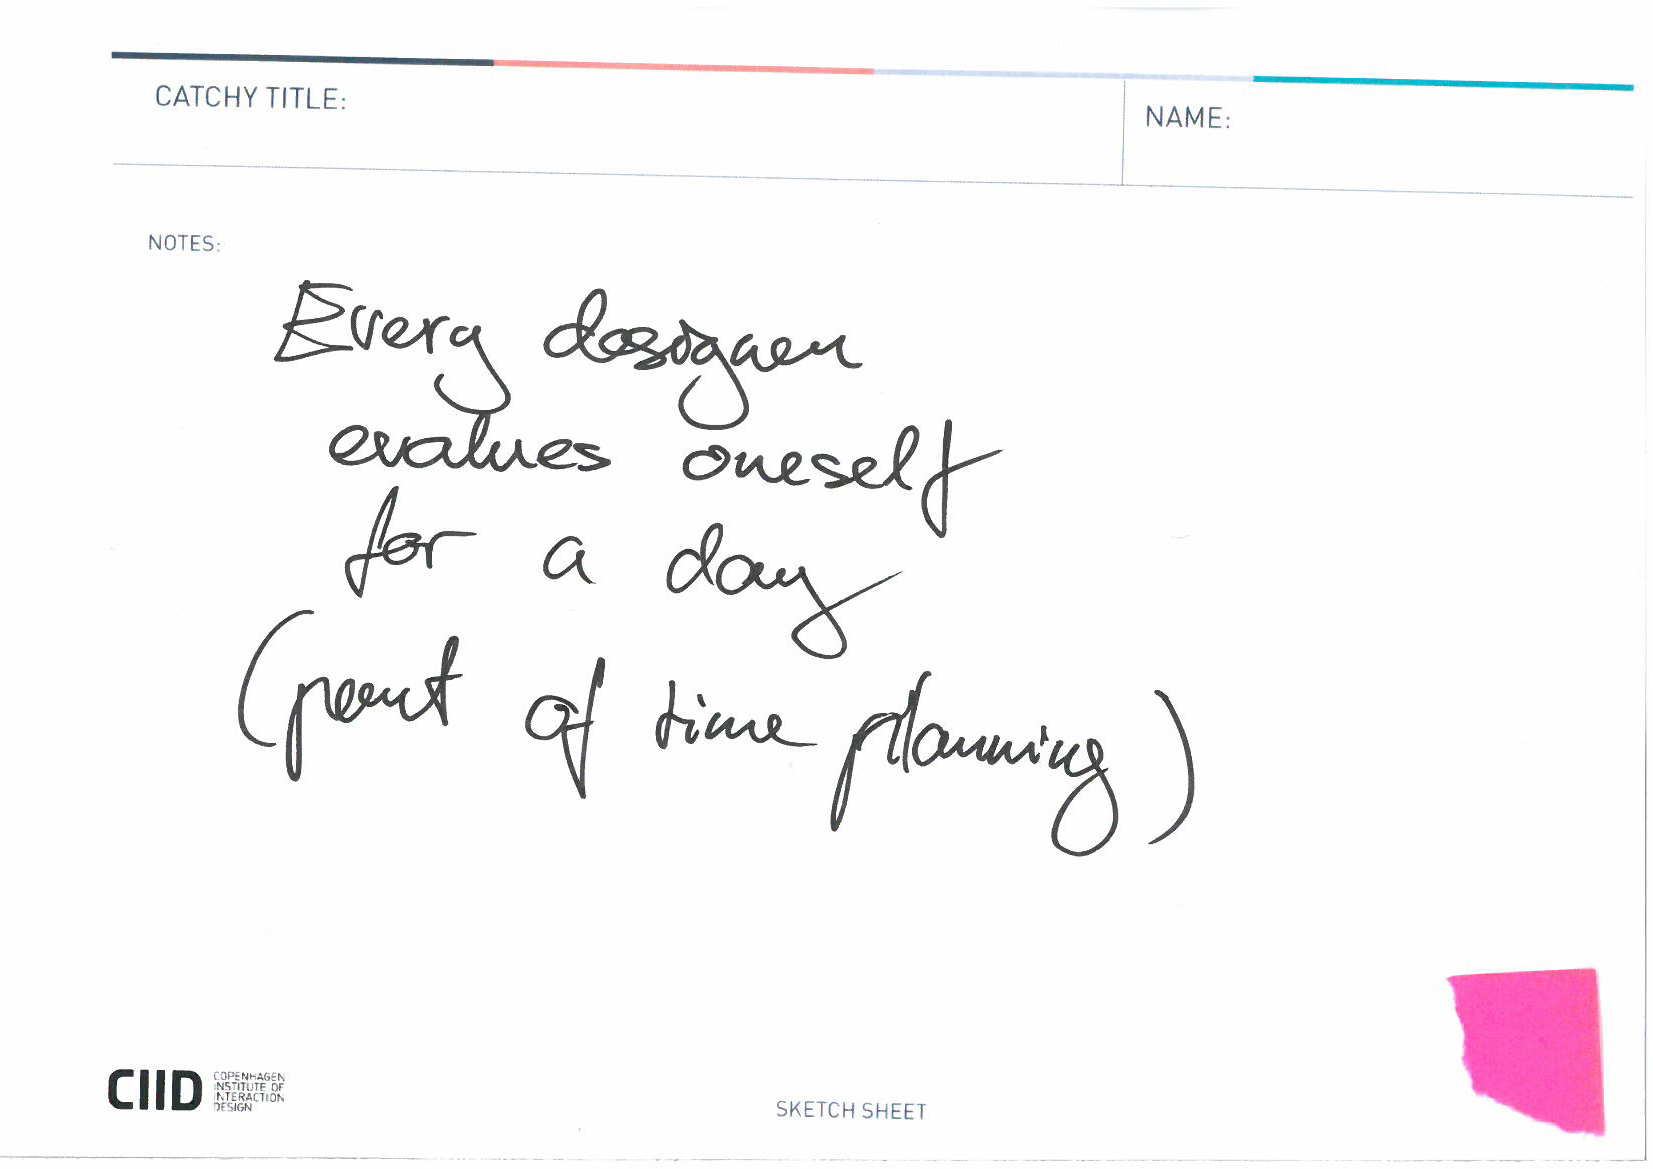 CATCHY TITLE:
NAME:
NOTES:
Every designer
evalues oneself
for a day
(part of time planning)
CIID
COPENHAGEN
INSTITUTE OF
INTERACTION
DESIGN
SKETCH SHEET